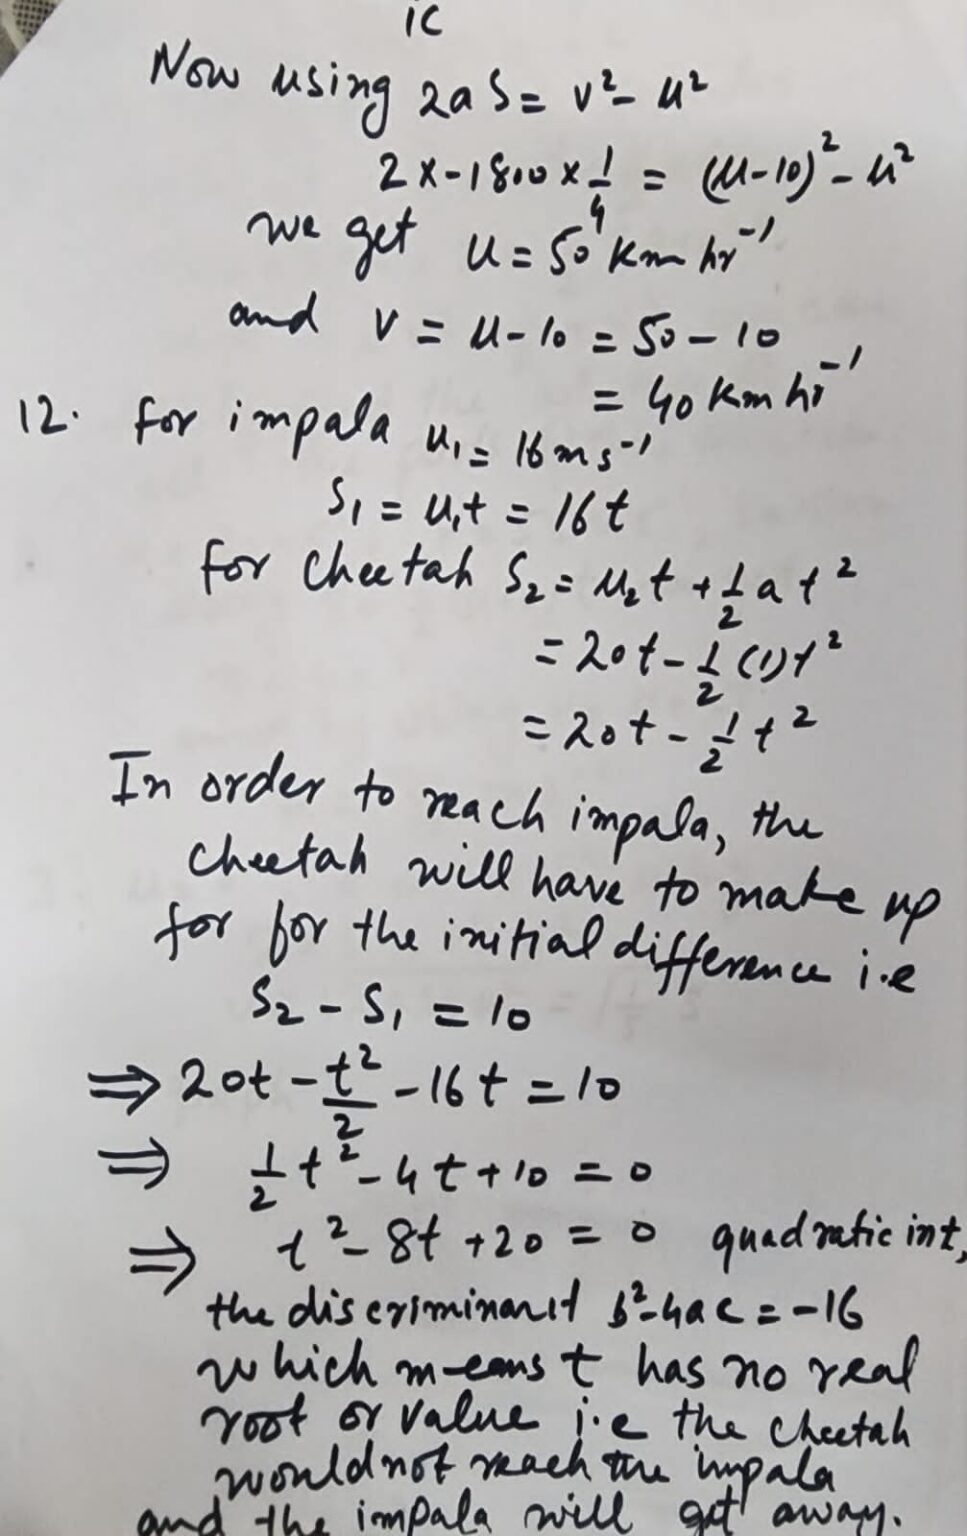 ic
Now using 2aS = v² - u²
2 x - 1800 x 1/4 = (u-10)² - u²
we get u = 50 km hr⁻¹
and v = u - 10 = 50 - 10
= 40 km hr⁻¹
12. for impala u₁ = 16 m s⁻¹
S₁ = u₁t = 16t
for cheetah S₂ = u₂t + 1/2 at²
= 20t - 1/2 (1)t²
= 20t - 1/2 t²
In order to reach impala, the
cheetah will have to make up
for for the initial difference i.e
S₂ - S₁ = 10
⇒ 20t - t²/2 - 16t = 10
⇒ 1/2 t² - 4t + 10 = 0
⇒ t² - 8t + 20 = 0 quadratic in t,
the discriminant b²-4ac = -16
which means t has no real
root or value i.e the cheetah
would not reach the impala
and the impala will get away.